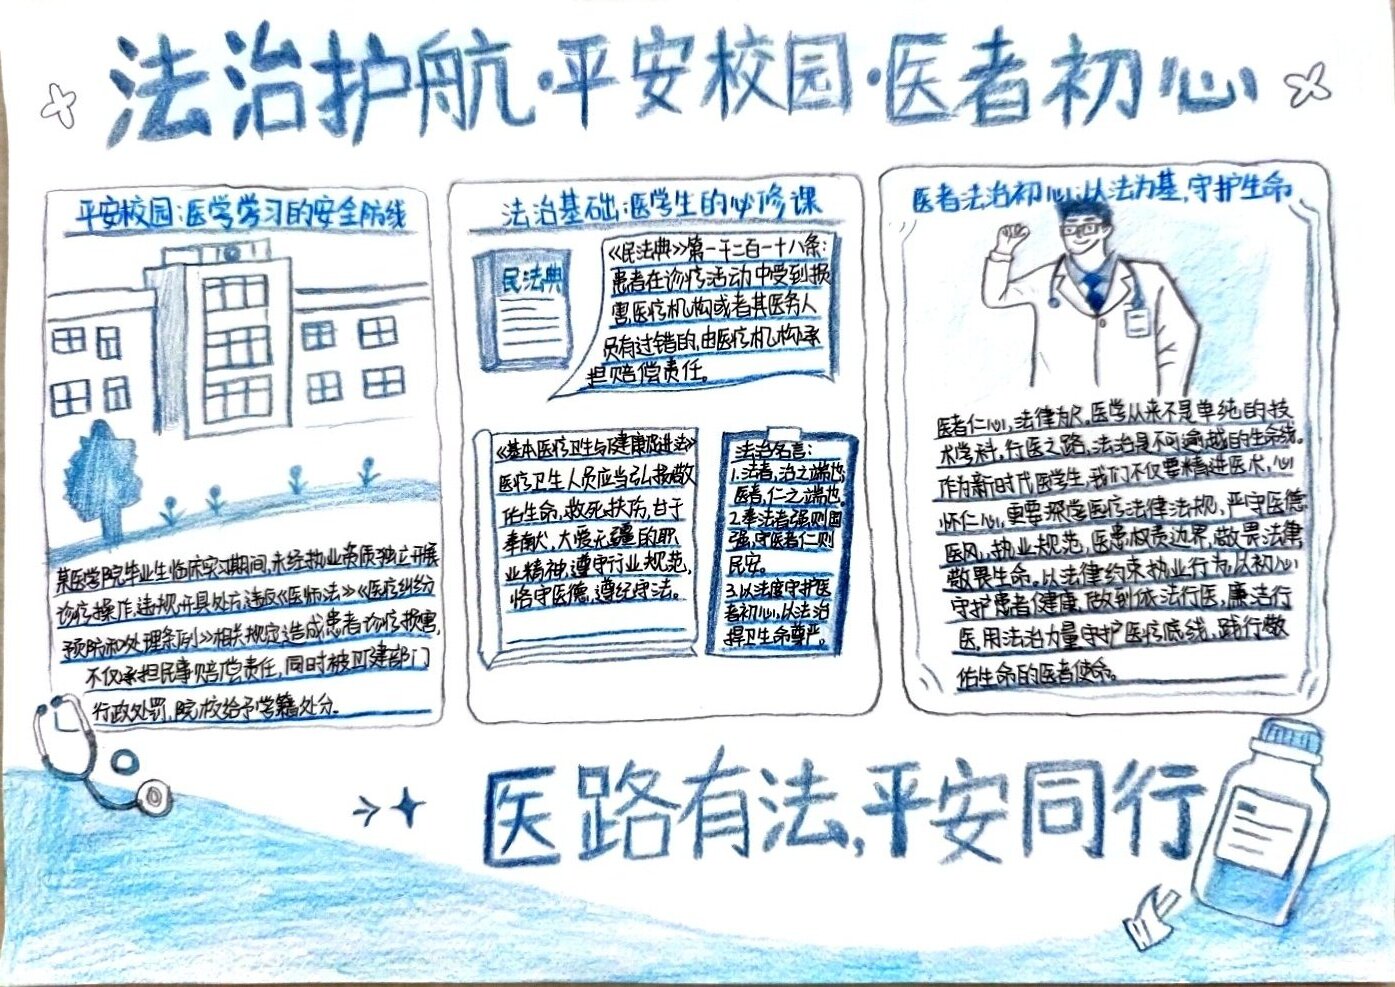 法治护航·平安校园·医者初心
平安校园:医学学习的安全防线
某医学院毕业生临床实习期间,未经执业资质独立开展
诊疗操作,违规开具处方,违反《医师法》《医疗纠纷
预防和处理条例》相关规定造成患者诊疗损害,
不仅承担民事赔偿责任,同时被卫健部门
行政处罚,院校给予学籍处分。
法治基础:医学生的必修课
民法典
《民法典》第一千二百一十八条:
患者在诊疗活动中受到损
害医疗机构或者其医务人
员有过错的,由医疗机构承
担赔偿责任。
《基本医疗卫生与健康促进法》
医疗卫生人员应当弘扬敬
佑生命,救死扶伤,甘于
奉献,大爱无疆的职
业精神,遵守行业规范,
恪守医德,遵纪守法。
法治名言:
1.法者,治之端也,
医者,仁之端也。
2.奉法者强则国
强,守医者仁则
民安。
3.以法度守护医
者初心,以法治
捍卫生命尊严。
医者法治初心:以法为基,守护生命
医者仁心,法律为尺。医学从来不是单纯的技
术学科,行医之路,法治是不可逾越的生命线。
作为新时代医学生,我们不仅要精进医术,心
怀仁心,更要深学医疗法律法规,严守医德
医风,执业规范,医患权责边界,敬畏法律,
敬畏生命。以法律约束执业行为,以初心
守护患者健康,做到依法行医,廉洁行
医,用法治力量守护医疗底线,践行敬
佑生命的医者使命。
医路有法,平安同行